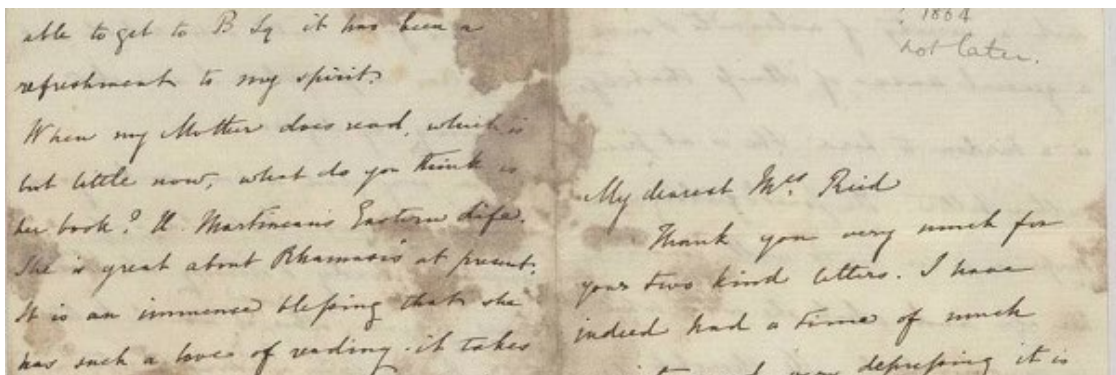 able to get to B Sq it has been a
refreshment to my spirit.
When my Mother does read, which is
but little now, what do you think is
her book? H. Martineau's Eastern Life.
She is great about Rhamasis at present.
It is an immence blessing that she
has such a love of reading. it takes
? 1864
not later.
My dearest Mrs Reid
Thank you very much for
your two kind letters. I have
indeed had a time of much
very depressing it is